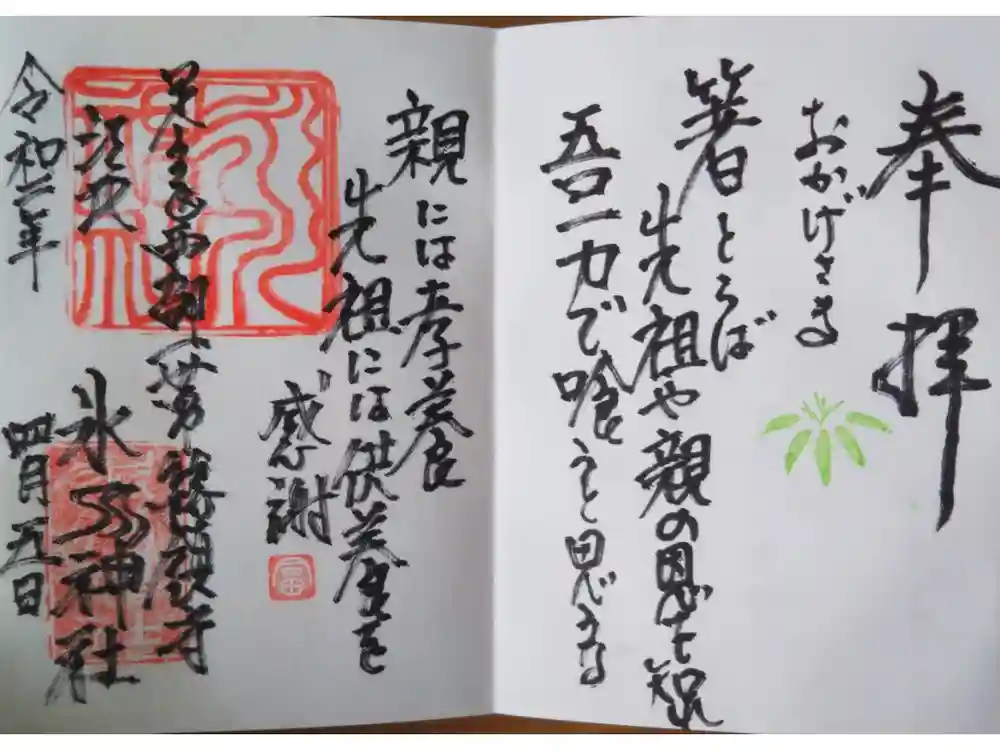 奉拝
おかげさま
箸とらば
先祖や親の恩を知れ
吾一力で喰うと思うな
親には孝養
先祖には供養を
感謝
富
足立区西新井
総持寺
江北
氷川神社
令和二年
四月五日